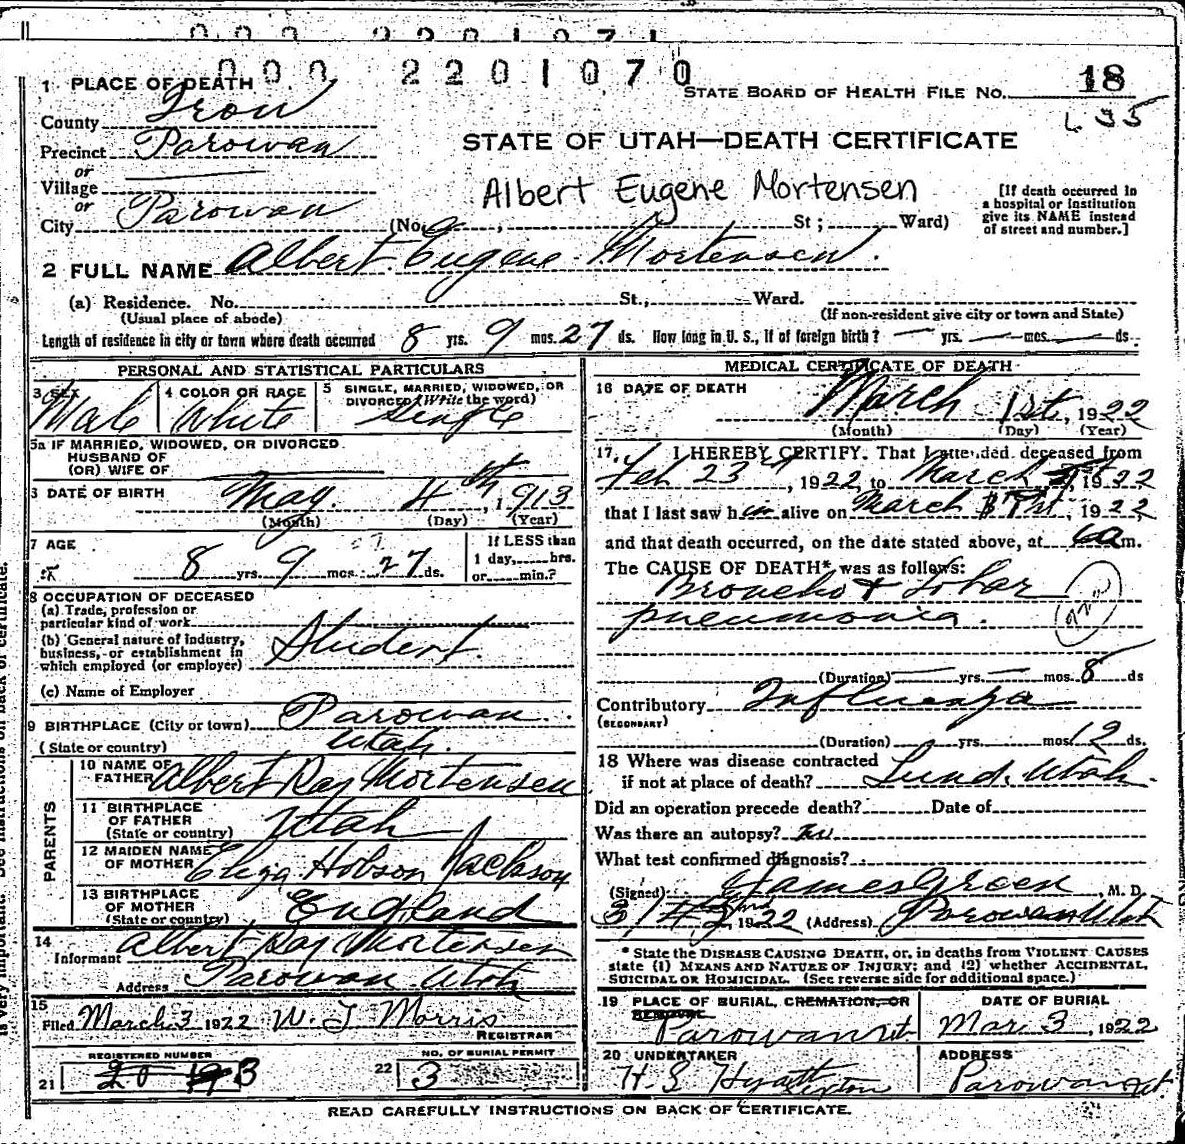 000 2201071
000 2201070
1 PLACE OF DEATH
STATE BOARD OF HEALTH FILE No. 18
County Iron
Precinct Parowan
STATE OF UTAH—DEATH CERTIFICATE
or
Village
Albert Eugene Mortensen
or
City Parowan (No. St; Ward)
[If death occurred in a hospital or institution give its NAME instead of street and number.]
2 FULL NAME Albert Eugene Mortensen.
(a) Residence. No. St., Ward.
(Usual place of abode) (If non-resident give city or town and State)
Length of residence in city or town where death occurred 8 yrs. 9 mos. 27 ds. How long in U. S., if of foreign birth? — yrs. — mos. — ds.
PERSONAL AND STATISTICAL PARTICULARS
3 SEX Male
4 COLOR OR RACE White
5 SINGLE, MARRIED, WIDOWED, OR DIVORCED (Write the word) Single
5a IF MARRIED, WIDOWED, OR DIVORCED
HUSBAND OF
(OR) WIFE OF
DATE OF BIRTH May 4th, 1913
(Month) (Day) (Year)
7 AGE
8 yrs. 9 mos. 27 ds.
If LESS than 1 day, hrs. or min.?
8 OCCUPATION OF DECEASED
(a) Trade, profession or particular kind of work
(b) General nature of industry, business, or establishment in which employed (or employer) Student
(c) Name of Employer
9 BIRTHPLACE (City or town) Parowan
(State or country) Utah.
PARENTS
10 NAME OF FATHER Albert Ray Mortensen
11 BIRTHPLACE OF FATHER (State or country) Utah
12 MAIDEN NAME OF MOTHER Eliza Hobson Jackson
13 BIRTHPLACE OF MOTHER (State or country) England
14 Informant Albert Ray Mortensen
Address Parowan Utah
15 Filed March 3 1922 W. J. Morris
REGISTRAR
REGISTERED NUMBER
21 20
NO. OF BURIAL PERMIT
22 3
MEDICAL CERTIFICATE OF DEATH
16 DATE OF DEATH March 1st, 1922
(Month) (Day) (Year)
17. I HEREBY CERTIFY. That I attended deceased from
Feb 23, 1922, to March 1st, 1922
that I last saw him alive on March 1st, 1922
and that death occurred, on the date stated above, at 6 a m.
The CAUSE OF DEATH* was as follows:
Broncho & Lobar
pneumonia.
(Duration) yrs. mos. 8 ds
Contributory Influenza
(SECONDARY)
(Duration) yrs. mos 12 ds.
18 Where was disease contracted
if not at place of death? Lund, Utah.
Did an operation precede death? Date of
Was there an autopsy? no
What test confirmed diagnosis?
(Signed) James Green, M. D.
1922 (Address) Parowan Utah
* State the DISEASE CAUSING DEATH, or, in deaths from VIOLENT CAUSES
state (1) MEANS AND NATURE OF INJURY; and (2) whether ACCIDENTAL,
SUICIDAL OR HOMICIDAL. (See reverse side for additional space.)
19 PLACE OF BURIAL, CREMATION, OR REMOVAL
Parowan Ut
DATE OF BURIAL
Mar. 3, 1922
20 UNDERTAKER
Sexton
ADDRESS
Parowan Ut.
READ CAREFULLY INSTRUCTIONS ON BACK OF CERTIFICATE.